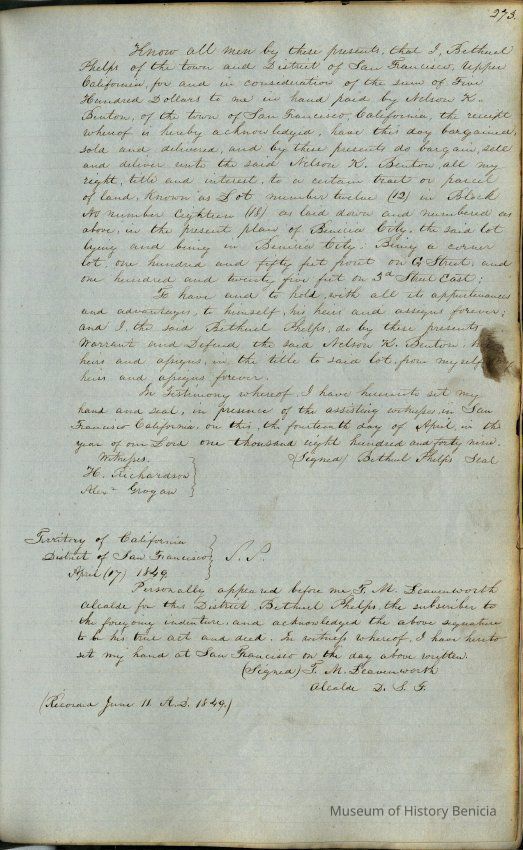 273.
Know all men by these presents, that I, Bethuel
Phelps of the town and District of San Francisco, Upper
California, for and in consideration of the sum of Five
Hundred Dollars to me in hand paid by Nelson K.
Benton, of the town of San Francisco, California, the receipt
whereof is hereby acknowledged, have this day bargained,
sold and delivered, and by these presents do bargain, sell
and deliver unto the said Nelson K. Benton, all my
right, title and interest, to a certain tract or parcel
of land, Known as Lot number twelve (12) in Block
No number Eighteen (18) as laid down and numbered as
above, in the present plan of Benicia City, the said lot
lying and being in Benicia City. Being a corner
lot, one hundred and fifty feet front on G Street, and
one hundred and twenty five feet on 3d Street East;
To have and to hold, with all its appurtenances
and advantages, to himself, his heirs and assigns forever;
and I, the said Bethuel Phelps, do by these presents
Warrant and Defend the said Nelson K. Benton, his
heirs and assigns, in the title to said lot, from myself, my
heirs and assigns forever.
In Testimony whereof, I have hereunto set my
hand and seal, in presence of the assisting witnesses, in San
Francisco California, on this, the fourteenth day of April, in the
year of our Lord one thousand eight hundred and forty nine.
Witnesses. (Signed) Bethuel Phelps Seal
H. Richardson
Alexr Grogan
Territory of California
District of San Francisco S.S.
April (17) 1849
Personally appeared before me T. M. Leavenworth
Alcalde for this District Bethuel Phelps, the subscriber to
the foregoing indenture, and acknowledged the above signature
to be his true act and deed. In witness whereof, I have hereto
set my hand at San Francisco on the day above written.
(Signed) T. M. Leavenworth
Alcalde D. S. F.
(Recorded June 11 A.D. 1849)
Museum of History Benicia